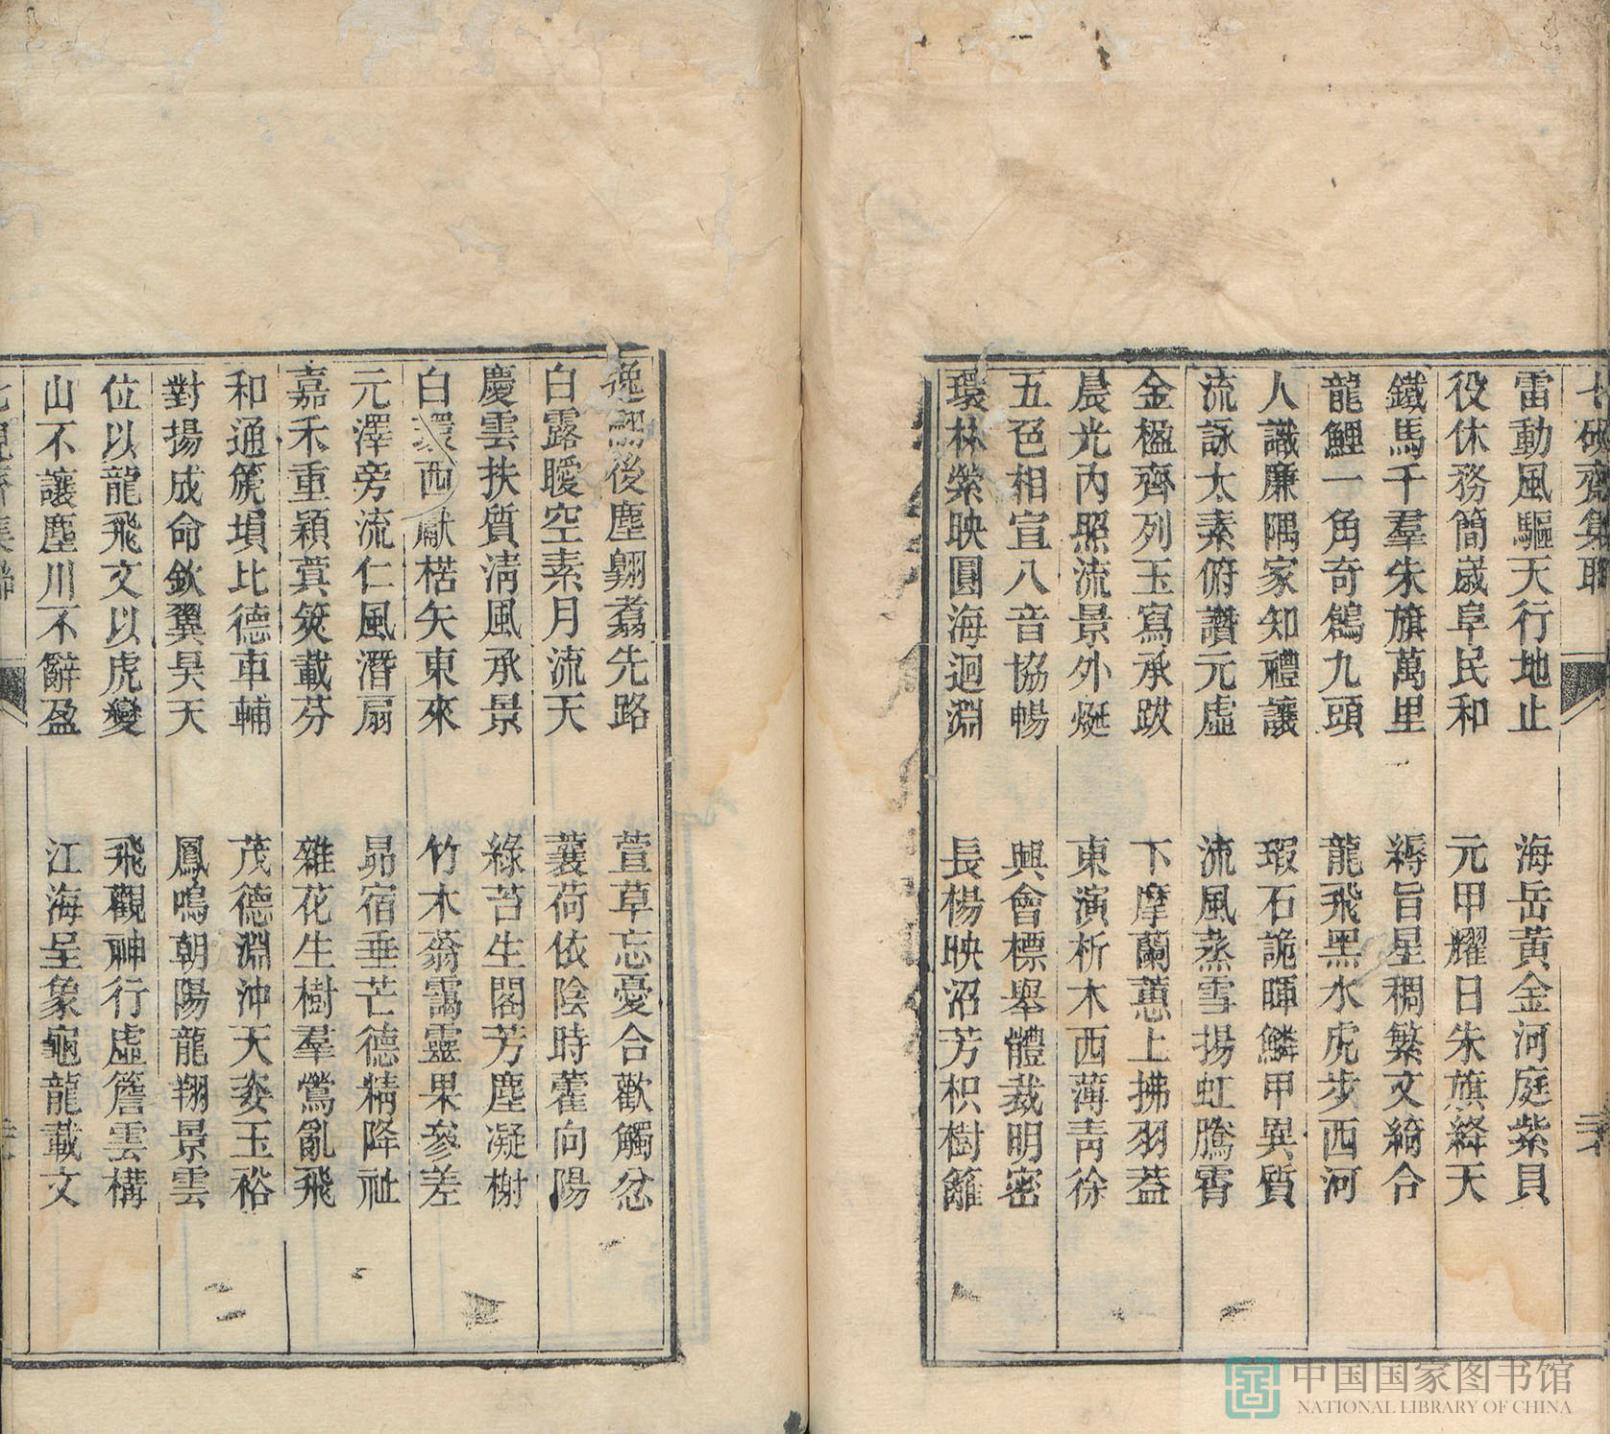 七硯齋集聯
雷動風驅天行地止 海岳黃金河庭紫貝
役休務簡歲阜民和 元甲耀日朱旗絳天
鐵馬千羣朱旗萬里 縟旨星稠繁文綺合
龍鯉一角奇鶬九頭 龍飛黑水虎步西河
人識廉隅家知禮讓 瑕石詭暉鱗甲異質
流詠太素俯讚元虛 流風蒸雪揚虹騰霄
金楹齊列玉舄承跋 下摩蘭蕙上拂羽蓋
晨光內照流景外烻 東演析木西薄青徐
五色相宣八音協暢 興會標舉體裁明密
環林縈映圓海迴淵 長楊映沼芳枳樹籬
逸翮後塵翱翥先路 萱草忘憂合歡觸忿
白露曖空素月流天 蘘荷依陰時藿向陽
慶雲扶質淸風承景 綠苔生閣芳塵凝榭
白環西獻楛矢東來 竹木蓊靄靈果參差
元澤旁流仁風潛扇 昴宿垂芒德精降祉
嘉禾重穎蓂莢載芬 雜花生樹羣鶯亂飛
和通篪塤比德車輔 茂德淵沖天姿玉裕
對揚成命欽翼昊天 鳳鳴朝陽龍翔景雲
位以龍飛文以虎變 飛觀神行虛簷雲構
山不讓塵川不辭盈 江海呈象龜龍載文
中国国家图书馆
NATIONAL LIBRARY OF CHINA